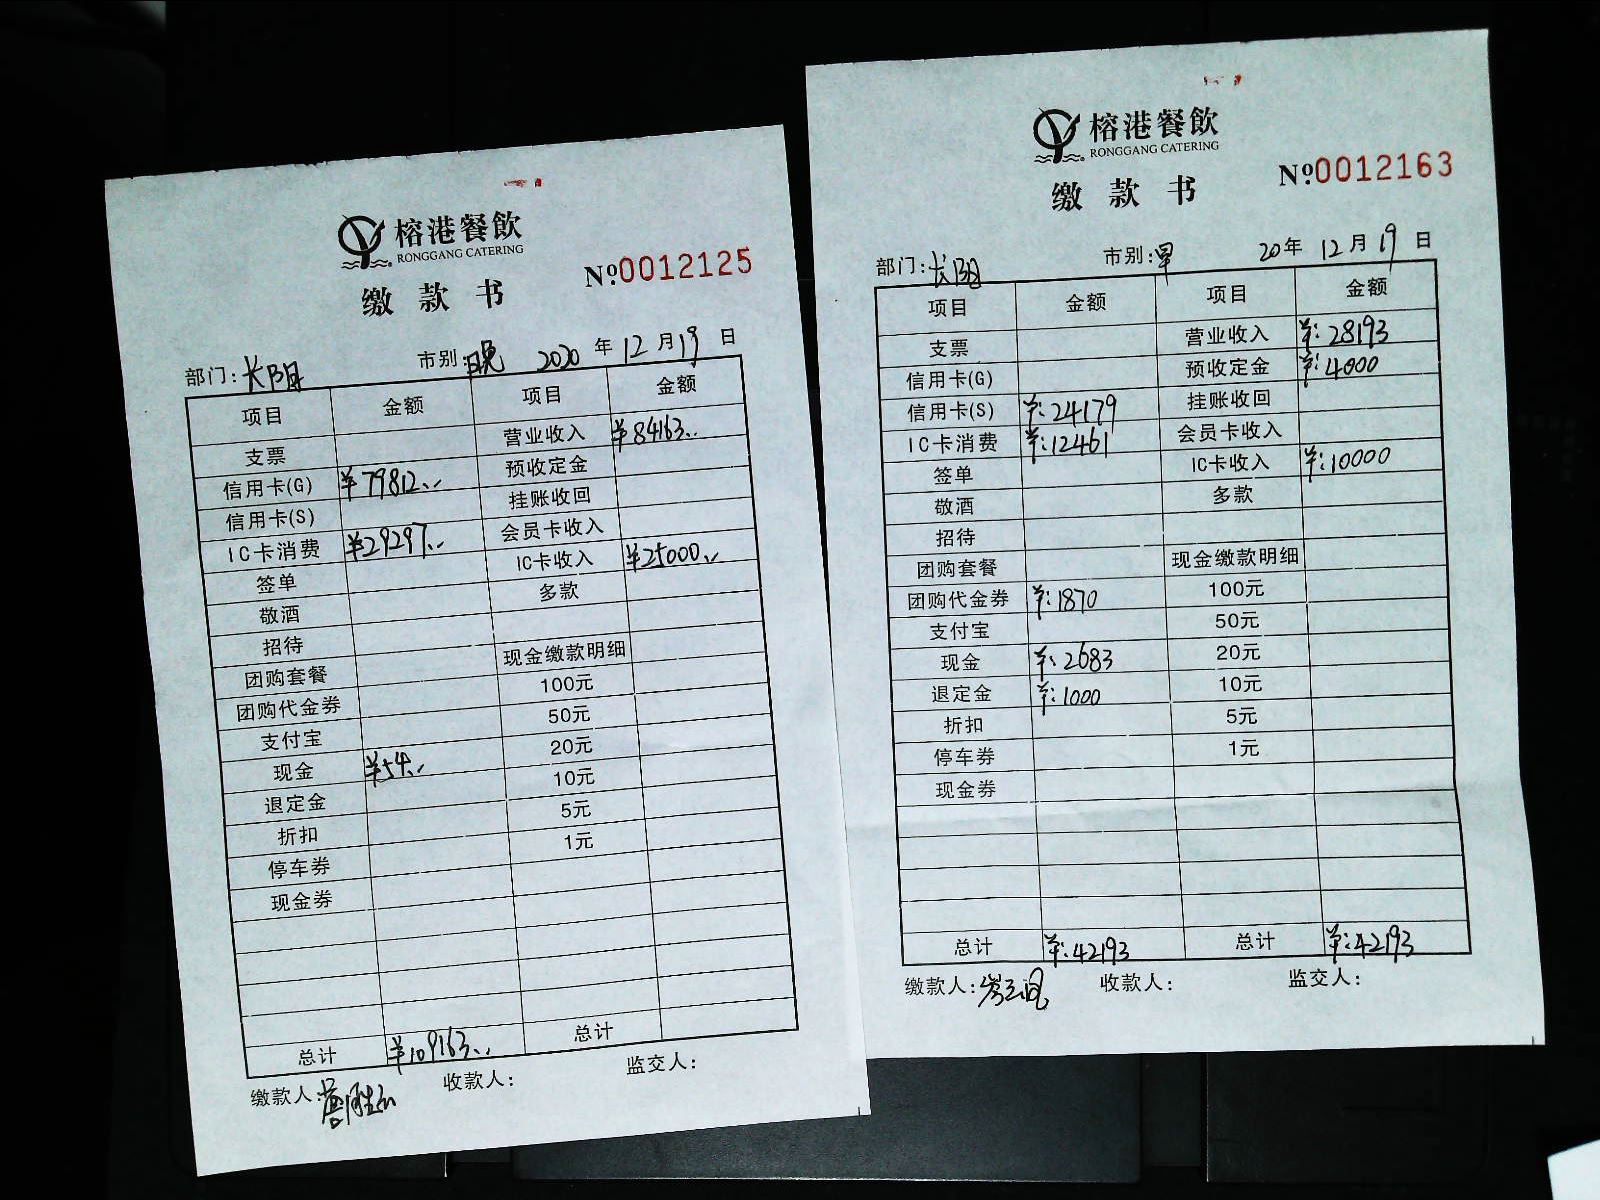 榕港餐飲
RONGGANG CATERING
缴款书
№0012125
部门:长阳 市别:晚 2020年12月19日
项目 金额 项目 金额
支票 营业收入 ¥84163..
信用卡(G) ¥79812.. 预收定金
信用卡(S) 挂账收回
IC卡消费 ¥29297.. 会员卡收入
签单 IC卡收入 ¥25000..
敬酒 多款
招待
团购套餐 现金缴款明细
团购代金券 100元
支付宝 50元
现金 ¥54.. 20元
退定金 10元
折扣 5元
停车券 1元
现金券
总计 ¥109163.. 总计
缴款人: 收款人: 监交人:
榕港餐飲
RONGGANG CATERING
缴款书
№0012163
部门:长阳 市别:早 20年12月19日
项目 金额 项目 金额
支票 营业收入 ¥:28193
信用卡(G) 预收定金 ¥:4000
信用卡(S) ¥:24179 挂账收回
IC卡消费 ¥:12461 会员卡收入
签单 IC卡收入 ¥:10000
敬酒 多款
招待
团购套餐 现金缴款明细
团购代金券 ¥:1870 100元
支付宝 50元
现金 ¥:2683 20元
退定金 ¥:1000 10元
折扣 5元
停车券 1元
现金券
总计 ¥:42193 总计 ¥:42193
缴款人: 收款人: 监交人: